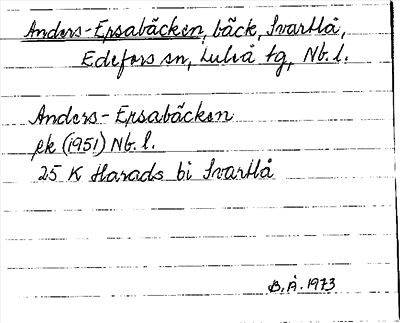 Anders-Ersabäcken, bäck, Svartlå,
Edefors sn, Luleå tg, Nb. l.
Anders-Ersabäcken
ek (1951) Nb. l.
25 K Harads bi Svartlå
B.Å. 1973